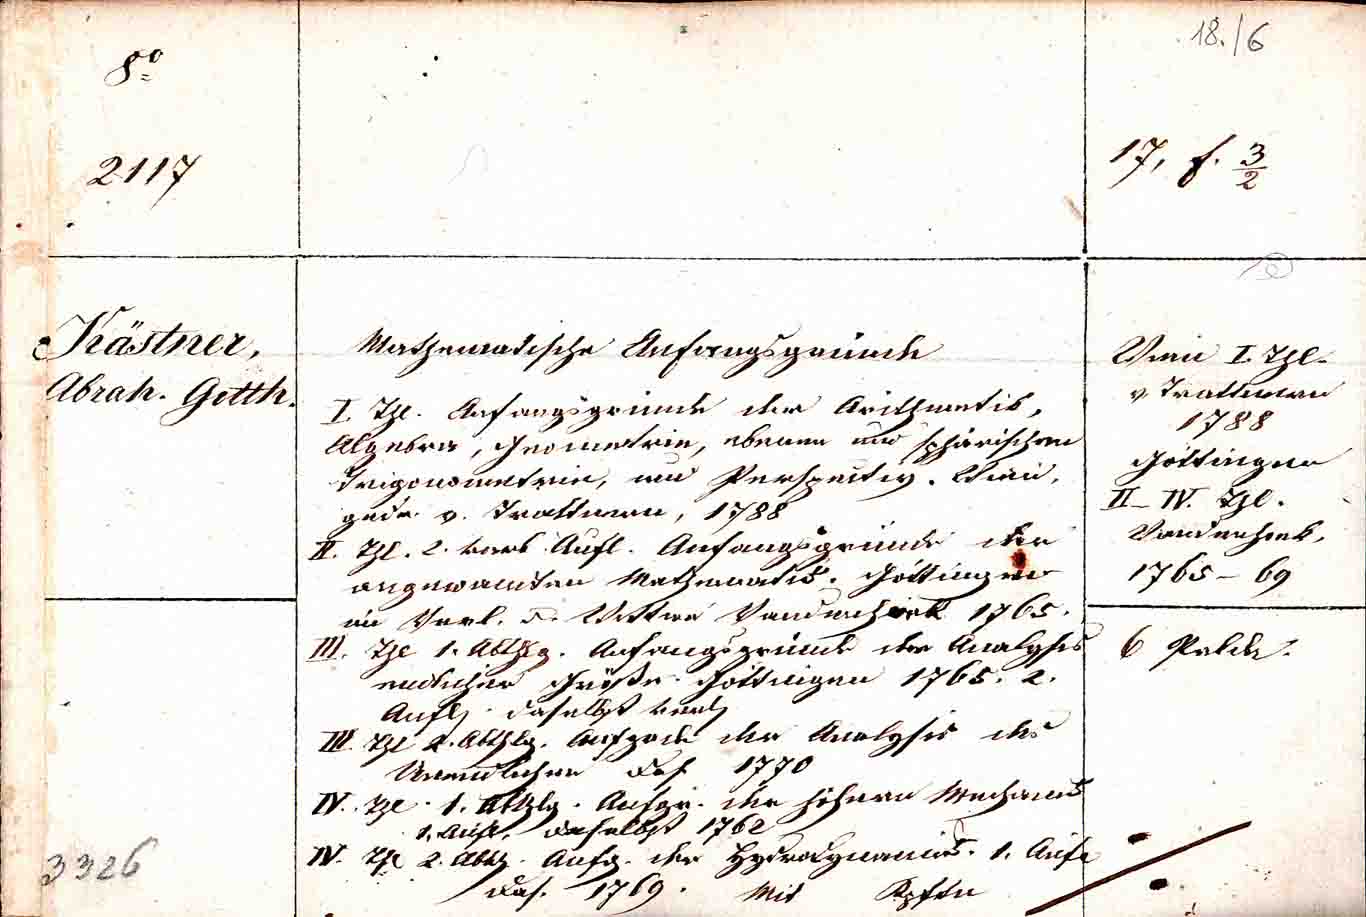 18./6
8º
2117
17, f. 3/2
Kästner,
Abrah. Gotth.
Mathematische Anfangsgründe
I Thl. Anfangsgründe der Arithmetik,
Algebra, Geometrie, ebenen und sphärischen
Trigonometrie, und Perspectiv. Wien,
gedr. v. Trattnern, 1788
II. Thl. 2. verb. Aufl. Anfangsgründe der
angewandten Mathematik. Göttingen
im Verl. d. Wittwe Vandenhoek 1765.
III. Thl 1. Abthlg. Anfangsgründe der Analysis
endlicher Größen. Göttingen 1765. 2.
Aufl. daselbst verl.
III. Thl 2. Abthlg. Anfgrde der Analysis des
Unendlichen das. 1770
IV. Thl. 1. Abthlg. Anfgr. der höhern Mechanik
1. Aufl. daselbst 1762
IV. Thl 2. Abthlg. Anfg. der Hydrodynamik. 1. Aufl
das. 1769. Mit Kpfrn
Wien I. Thl.
v Trattnern
1788
Göttingen
II-IV. Thl.
Vandenhoek,
1765-69
6
3326